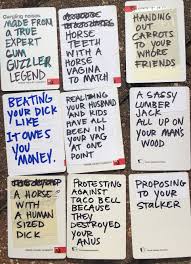 MADE FROM
A TRUE
EXPERT
CUM
GUZZLER
LEGEND
HORSE
TEETH WITH
A HORSE
VAGINA TO
MATCH
HANDING
OUT
CARROTS
TO YOUR
WHORE
FRIENDS
BEATING
YOUR DICK
LIKE
IT OWES
YOU
MONEY.
REALIZING
YOUR HUSBAND
AND KIDS
HAVE ALL
BEEN IN
YOUR VAG
AT ONE
POINT
A SASSY
LUMBER
JACK
ALL UP ON
YOUR MAN'S
WOOD
A HORSE
WITH A
HUMAN
SIZED
DICK
PROTESTING
AGAINST
TACO BELL
BECAUSE
THEY
DESTROYED
YOUR
ANUS
PROPOSING
TO YOUR
STALKER